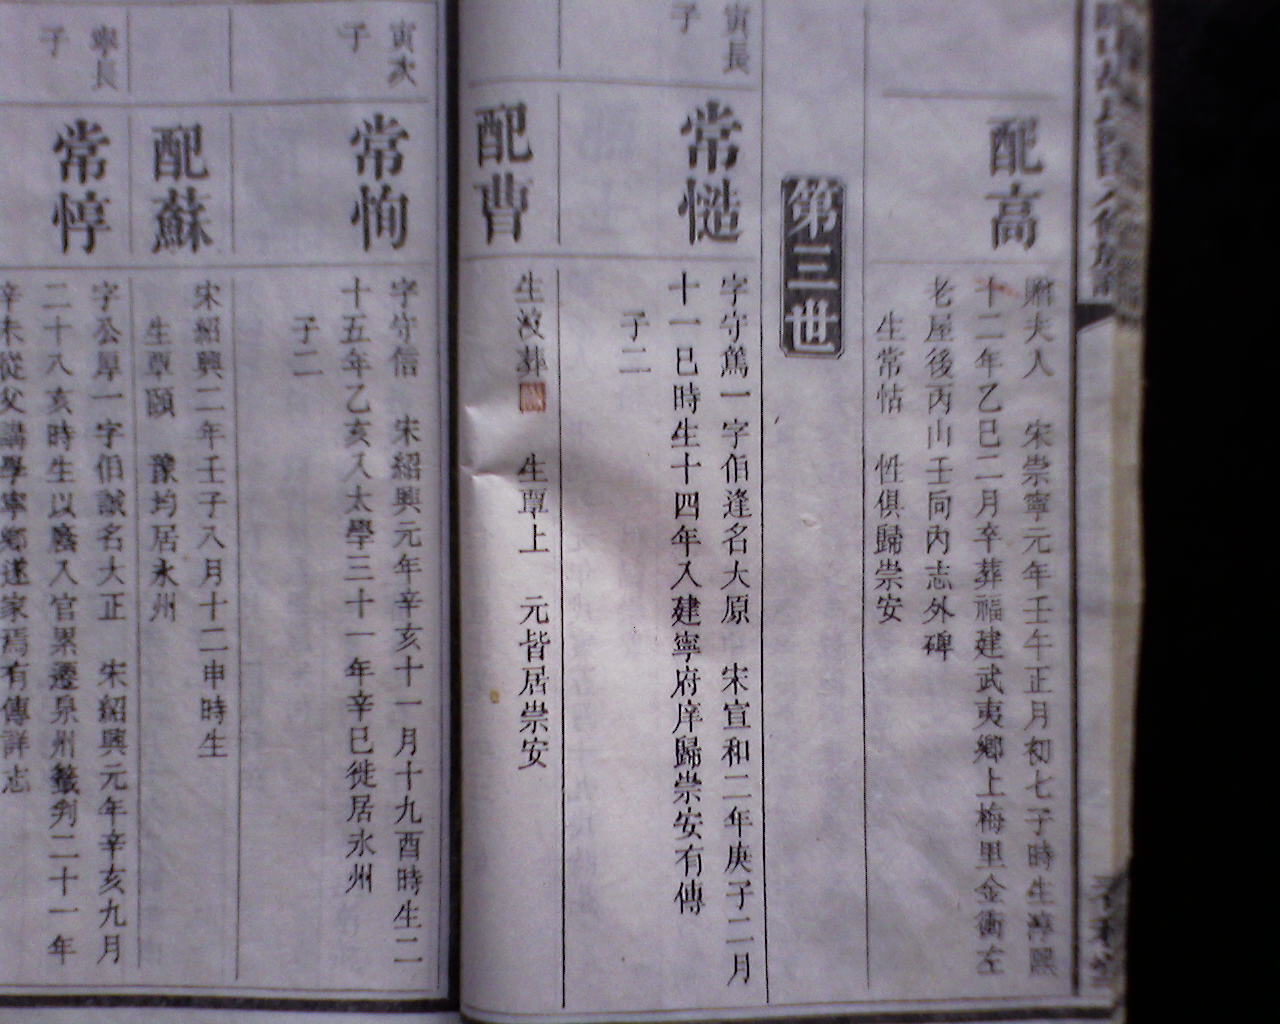 配高
贈夫人　宋崇寧元年壬午正月初七子時生淳熙
十二年乙巳二月卒葬福建武夷鄉上梅里金衝左
老屋後丙山壬向內志外碑
生常怙　性俱歸崇安
第三世
寅長
子
常慥
字守篤一字伯逢名大原　宋宣和二年庚子二月
十一巳時生十四年入建寧府庠歸崇安有傳
子二
配曹
生沒葬
生覃上　元皆居崇安
寅次
子
常恂
字守信　宋紹興元年辛亥十一月十九酉時生二
十五年乙亥入太學三十一年辛巳徙居永州
子二
配蘇
宋紹興二年壬子八月十二申時生
生覃頤　豫均居永州
寧長
子
常惇
字公厚一字伯誠名大正　宋紹興元年辛亥九月
二十八亥時生以廕入官累遷泉州籤判二十一年
辛未從父講學寧鄉遂家焉有傳詳志